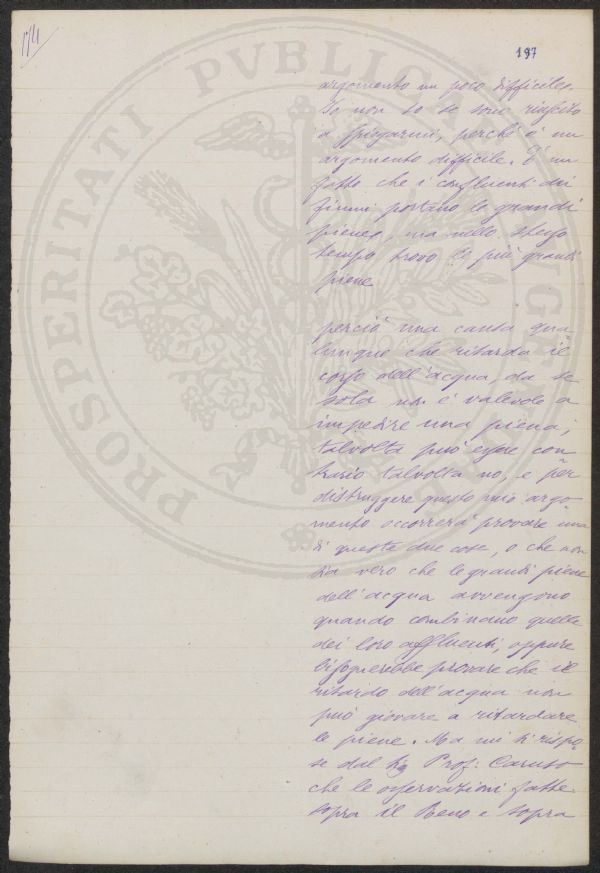 174
197
argomento un poco difficile.
Io non so se sono riuscito
a spiegarmi, perchè è un
argomento difficile. È un
fatto che i confluenti dei
fiumi portano le grandi
piene, ma nello stesso
tempo trovo le più grandi
piene
perciò una causa qua
lunque che ritarda il
corso dell'acqua, da se
sola non è valevole a
impedire una piena;
talvolta può essere con
trario talvolta no, e per
distruggere questo mio argo-
mento occorrerà provare una
di queste due cose, o che non
sia vero che le grandi piene
dell'acqua avvengono
quando combinano quelle
dei loro affluenti, oppure
bisognerebbe provare che il
ritardo dell'acqua non
può giovare a ritardare
le piene. Ma mi si rispo
se dal Sig Prof: Caruso
che le osservazioni fatte
sopra il Reno e sopra
PROSPERITATI PVBLICAE